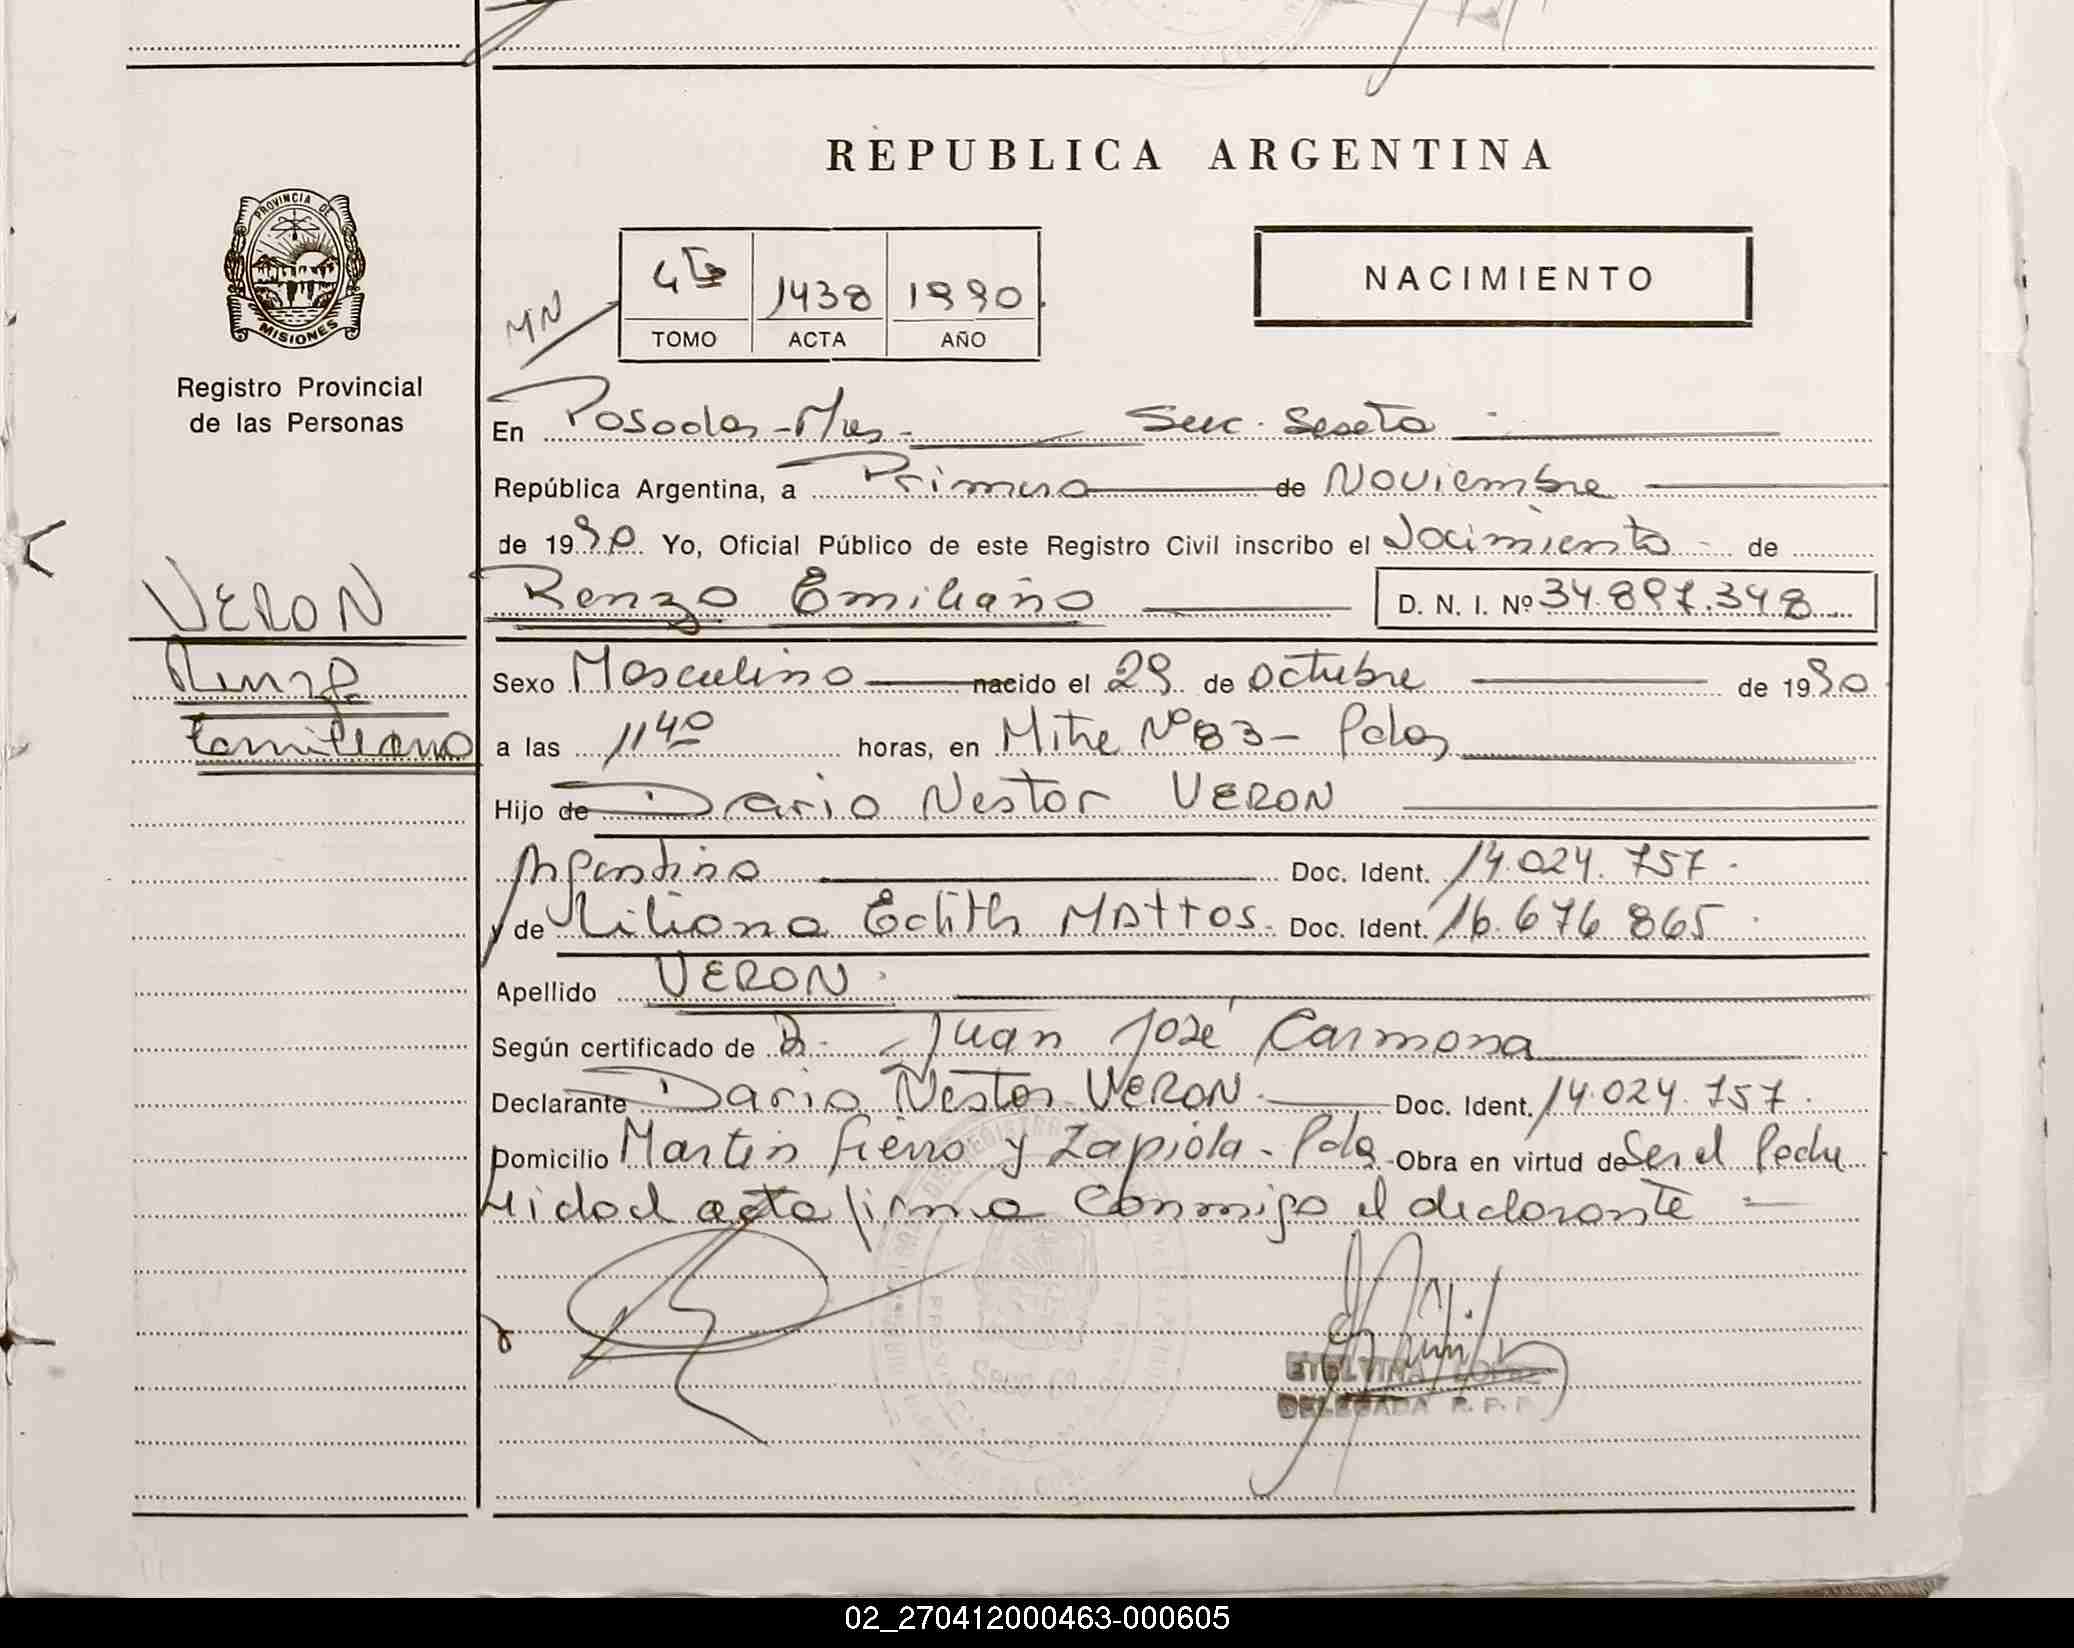 REPUBLICA ARGENTINA
PROVINCIA DE
MISIONES
Registro Provincial
de las Personas
4to 1438 1990
TOMO ACTA AÑO
NACIMIENTO
MN
En Posadas - Mnes - Secc. Sexta
República Argentina, a Primero de Noviembre
de 1990 Yo, Oficial Público de este Registro Civil inscribo el Nacimiento de
VERON
Renzo Emiliano D. N. I. Nº 34.897.348
Renzo
Emiliano
Sexo Masculino nacido el 29 de Octubre de 1990
a las 11 40 horas, en Mitre Nº 83 - Pdas
Hijo de Dario Nestor VERON
Argentino Doc. Ident. 14.024.757.
y de Liliana Edith MATTOS. Doc. Ident. 16.676.865
Apellido VERON
Según certificado de Dr. Juan José Carmona
Declarante Dario Nestor VERON. Doc. Ident. 14.024.757.
Domicilio Martin Fierro y Zapiola - Pdas Obra en virtud de Ser el Padre
acta firma conmigo el declarante
Secc. 6ª
ETELVINA LOPEZ
DELEGADA R. P. P.
02_270412000463-000605